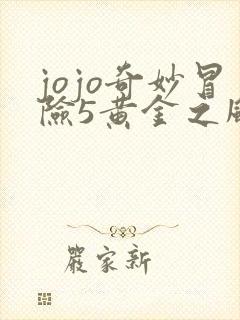 jojo奇妙冒
險5黃金之風
嚴家新